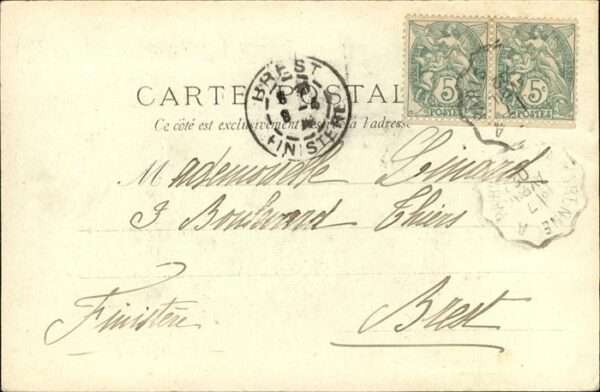 5c
POSTES
5c
POSTES
CARTE POSTALE
BREST
FINISTERE
Ce côté est exclusivement réservé à l'adresse
Mademoiselle Linard
3 Boulevard Thiers
Finistère
Brest